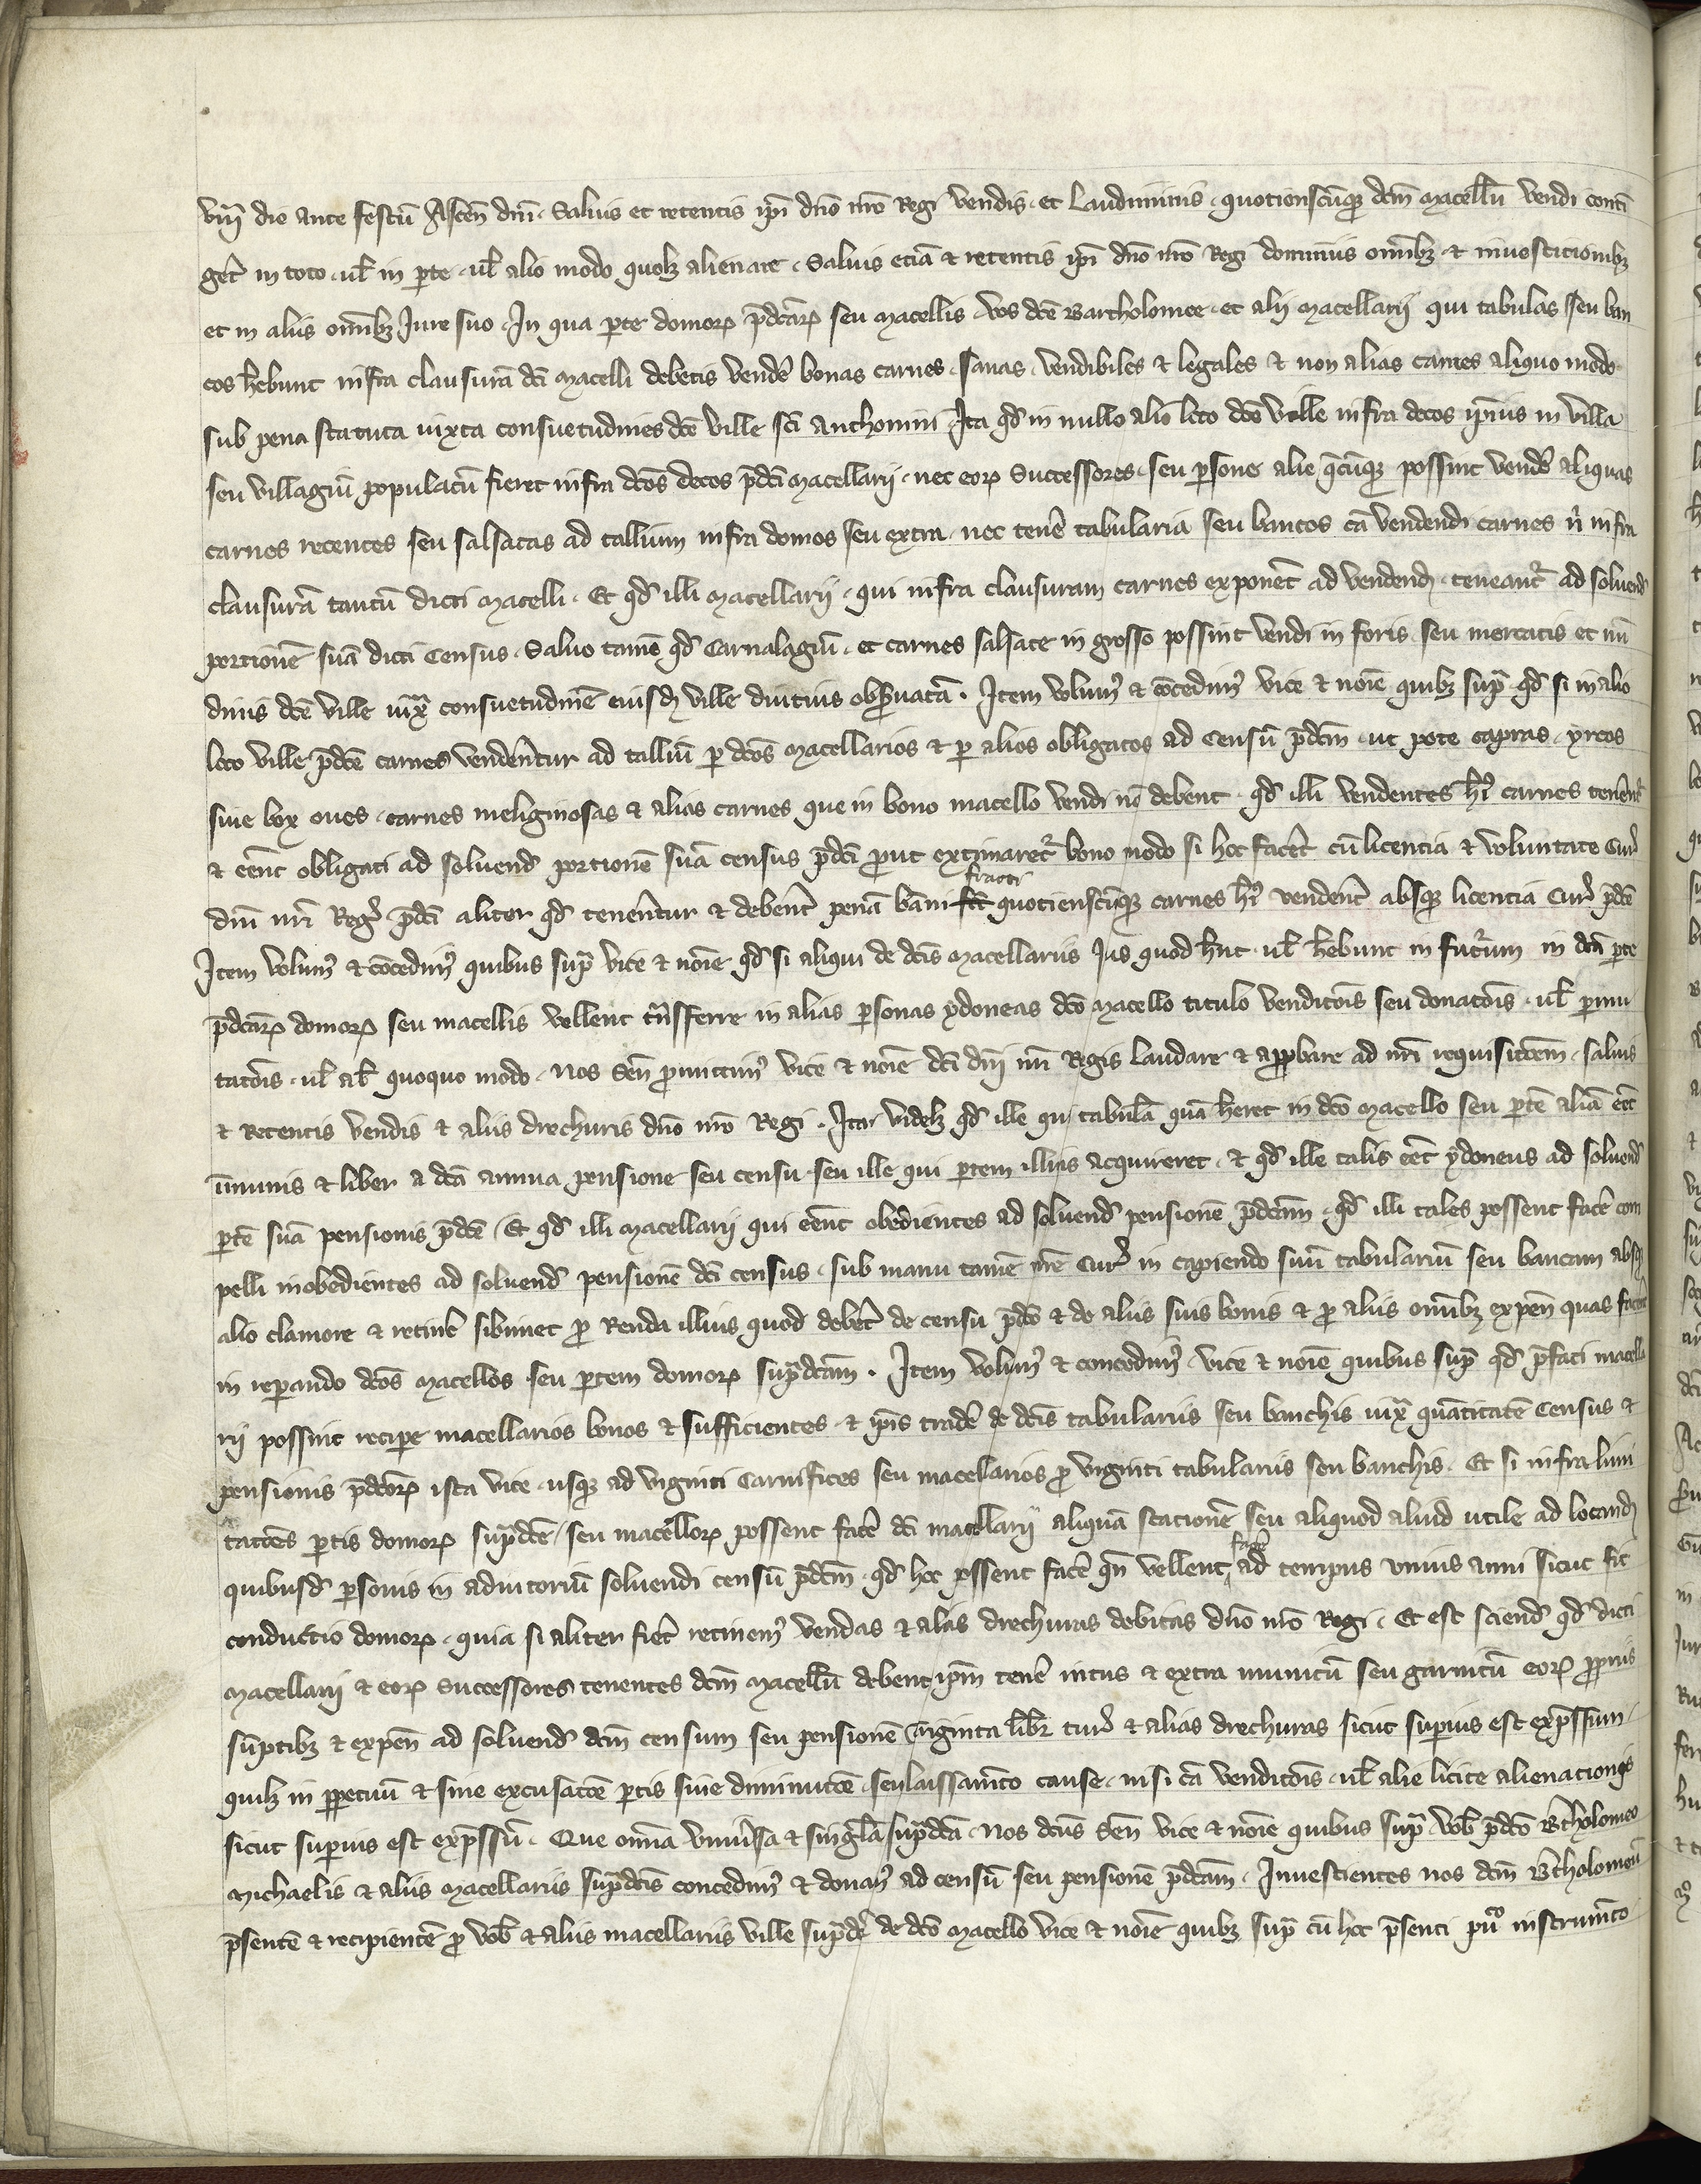 viij die ante festū Ascen̄ dnī · Saluis et retentis ipī dn̄o nr̄o Regi vendis · et Laudiminiis · quotienscūqꝫ dcm̄ macellū vendi conti
ger̄t in toto · uł in ꝑte · uł alio modo quolꝫ alienare · Saluis eciā & retentis ipī dn̄o nr̄o Regi dominiis om̄ibꝫ & inuesticionibꝫ
et in aliis om̄ibꝫ Jure suo · In qua ꝑte domoꝝ p̄dcāꝝ seu macellis vos dcē Bartholomee · et alij macellarij qui tabulas seu ban
cos hēbunt infra clausurā dcī macelli debetis vendē bonas carnes · sanas · vendibiles & legales & non alias carnes aliquo modo
sub pena statuta iuxta consuetudines dcē ville scī Anthonini Ita qđ in nullo alio loco dcē ville infra decos ip̄ius in villa
seu villagiū populatū fieret infra dcōs decos p̄dcī macellarij · nec eoꝝ Successores · seu ꝑsone alie q̄cūqꝫ possint vendē aliquas
carnes recentes seu salsatas ad tallium infra domos seu extra · nec tenē tabularia seu bancos cā vendendi carnes n̄ infra
clausurā tantū dicti macelli · Et qđ illi macellarij · qui infra clausuram carnes exponēt ad vendend̄ · teneant̄ ad soluend̄
portionē suā dicti Census · Saluo tamē qđ Carnalagiū · et carnes salsate in grosso possint vendi in foris seu mercatis et nū
dinis dcē ville iux̄ consuetudinē eiusd̄ ville diutius obꝑuatā · Item volumꝰ & cōcedimꝰ vice & noīe quibꝫ sup̄ qđ si in alio
loco ville p̄dcē carnes vendēntur ad talliū ꝑ dcōs macellarios & ꝑ alios obligatos ad Censū p̄dcm̄ · ut pote capras · yrcos
siue box oues · carnes meliginosas & alias carnes que in bono macello vendi nō debent · qđ illi vendentes hꝰi carnes tenēnt̄
& eēnt obligati ad soluend̄ portionē suā census p̄dcī ꝓut extimaret̄ bono modo si hoc facēt cū licencia & voluntate Cur̄
dnī nr̄i Reḡ p̄dcī aliter qđ tenēntur & debēnt penā bāni fcī fracti quotienscūqꝫ carnes hꝰi vendēnt absqꝫ licencia Cur̄ p̄dcē
Item volumꝰ & cōcedimꝰ quibus sup̄ vice & noīe qđ si aliqui de dcīs macellariis Jus quod hn̄t · uł hēbunt in futurum in dcā ꝑte
p̄dcāꝝ domoꝝ seu macellis vellent trāsferre in alias ꝑsonas ydoneas dcō macello titulo vendicōis seu donacōis · uł ꝑmu
tacōis · uł al̄ quoquo modo · nos Sen̄ ꝓmittimꝰ vice & noīe dcī dnī nr̄i Regis laudare & approbare ad nr̄i requisicōem · saluis
& Retentis vendis & aliis drechuris dn̄o nr̄o Regi · Ita videlꝫ qđ ille qui tabulā quā heret in dcō macello seu ꝑtē aliā eēt
īmunis & liber a dcā annua pensione seu censu · seu ille qui ꝑtem illius acquireret · & qđ ille talis eēt ydoneus ad soluend̄
ꝑtē suā pensionis p̄dcē · Et qđ illi macellarij qui eēnt obedientes ad soluend̄ pensionē p̄dcām · qđ illi tales possent facē com
pelli inobedientes ad soluend̄ pensionē dcī census · sub manu tamē nr̄e Cur̄ in capiendo suū tabulariū seu bancum absqꝫ
alio clamore & retinē sibimet ꝓ Renda illius quod debēt de censu p̄dcō & de aliis suis bonis & ꝓ aliis om̄ibꝫ expen̄ quas facēnt
in reꝑando dcōs macellos seu ꝑtem domoꝝ sup̄dcām · Item volumꝰ & concedimꝰ vice & noīe quibus sup̄ qđ p̄fati macella
rij possint reciꝑe macellarios bonos & sufficientes · & ip̄is tradē de dcīs tabulariis seu banchis iux̄ quātitatē Census &
pensionis p̄dcōꝝ ista vice · usqꝫ ad viginti Carnifices seu macellarios ꝓ viginti tabulariis seu banchis · Et si infra limi
tacōes ꝑtis domoꝝ sup̄dcē / seu macelloꝝ possent facē dcī macellarij aliquā stacionē seu aliquod aliud utile ad locand̄
quibusd̄ ꝑsonis in adiutoriū soluendi censū p̄dcm̄ · qđ hoc possent facē qn̄ vellent facē ad tempus unius anni sicut fit
conductio domoꝝ · quia si aliter fiēt retinemꝰ vendas & alias drechuras debitas dn̄o nr̄o Regi · Et est sciend̄ qđ dicti
macellarij & eoꝝ Successores tenentes dcm̄ macellū debent ip̄m tenē intus & extra munitū seu garnitū eoꝝ ꝓpriis
sūptibꝫ & expen̄ ad soluend̄ dcm̄ censum seu pensionē viginta libr̄ tur̄ & alias drechuras sicut superius est exp̄ssum
quilꝫ in ꝑpetuū & sine excusacōe ꝑtis siue diminucōe · seu laissam̄to cause · nisi cā vendicōis · uł alie licite alienacionis
sicut suꝑius est exp̄ssū · Que om̄ia vniūsa & singl̄a sup̄dcā · Nos dcūs Sen̄ vice & noīe quibus sup̄ vob̄ p̄dcō Bartholomeo
Michaelis & aliis macellariis sup̄dcīs concedimꝰ & donamꝰ ad censū seu pensionē p̄dcām · Inuestientes nos dcm̄ Bartholomeū
p̄sentē & recipientē ꝓ vob̄ & aliis macellariis ville sup̄dcē de dcō macello vice & noīe quibꝫ sup̄ cū hoc p̄senti pūco instrumēto